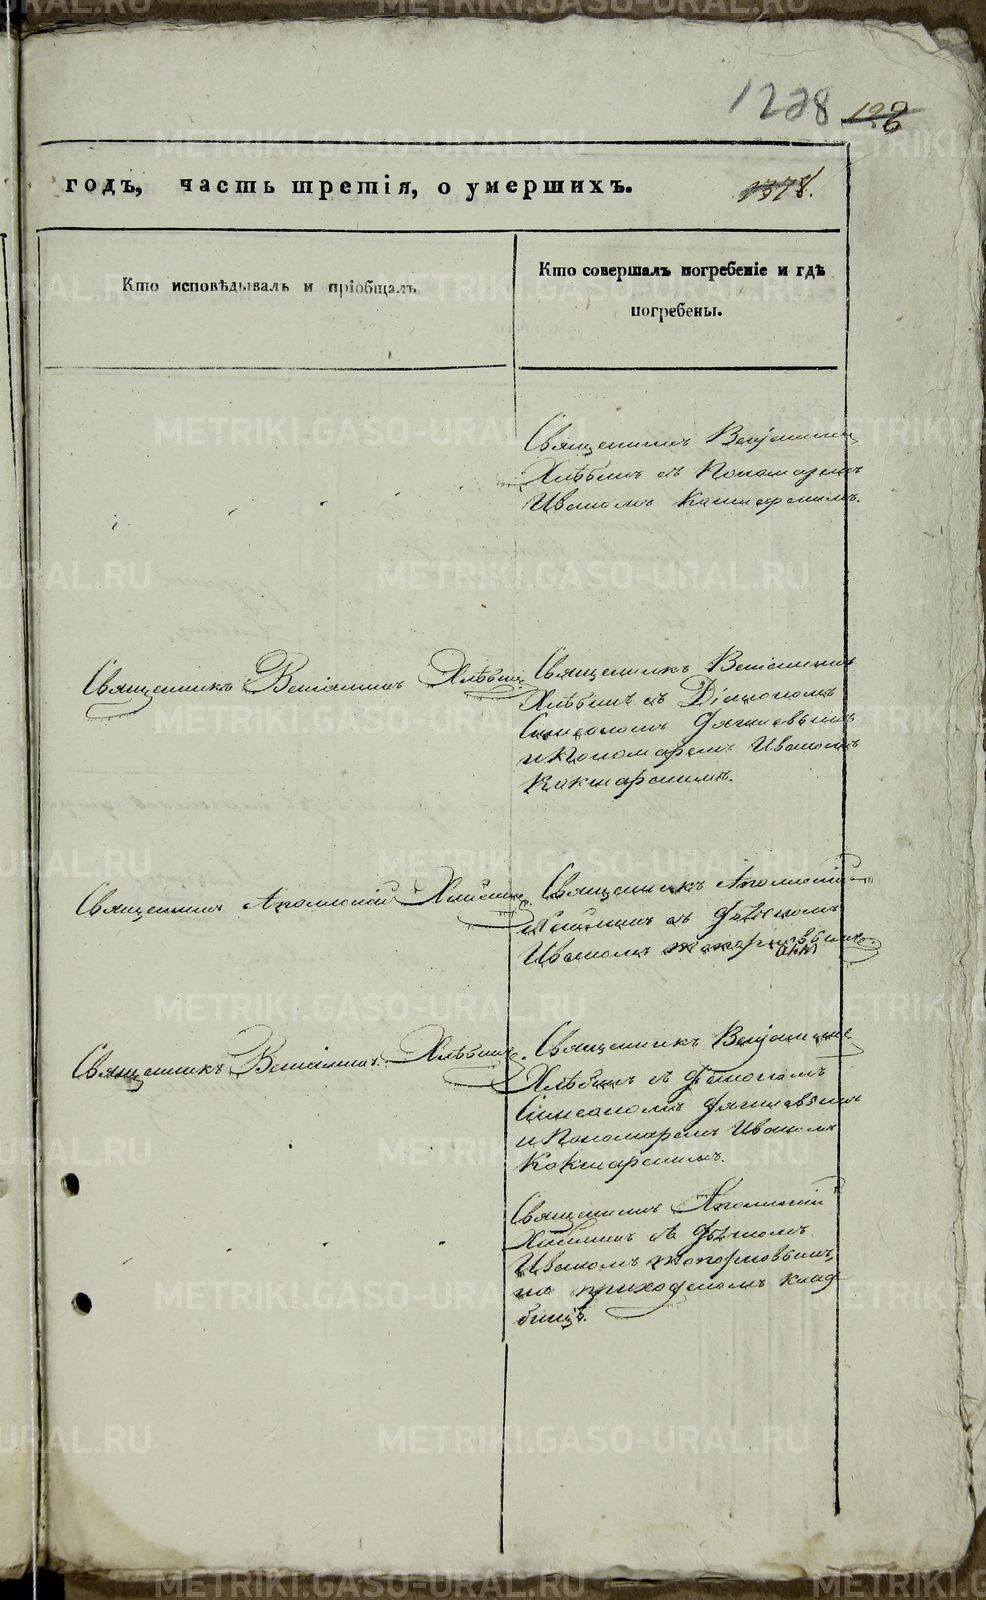 1228 126
годъ, часть третія, о умершихъ. 1378.
Кто исповѣдывалъ и пріобщалъ
Кто совершалъ погребеніе и гдѣ
погребены.
Священникъ Веніаминъ
Хлѣбинъ съ Пономаремъ
Иваномъ Кокшарскимъ.
Священникъ Веніаминъ Хлѣбинъ
Священникъ Веніаминъ
Хлѣбинъ съ Діакономъ
Симеономъ
и Пономаремъ Иваномъ
Кокшарскимъ.
Священникъ Аполлоній
Священникъ Аполлоній
съ Дьячкомъ
Иваномъ
Священникъ Веніаминъ Хлѣбинъ.
Священникъ Веніаминъ
Хлѣбинъ съ Діакономъ
Симеономъ
и Пономаремъ Иваномъ
Кокшарскимъ.
Священникъ Аполлоній
съ Дьячкомъ
Иваномъ Топорковымъ
на приходскомъ клад
бищѣ.
METRIKI.GASO-URAL.RU